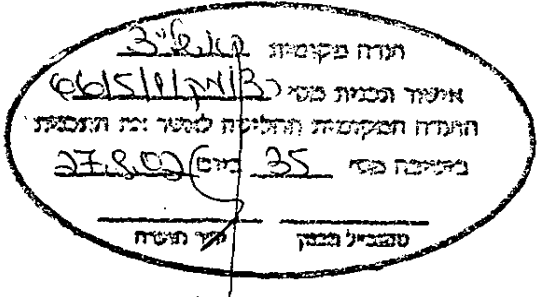 ועדה מקומית
אישור תכנית מס'
הועדה המקומית החליטה לאשר את התכנית
בישיבה מס' 35 ביום 27.8.02
סמנכ"ל תכנון יו"ר הועדה